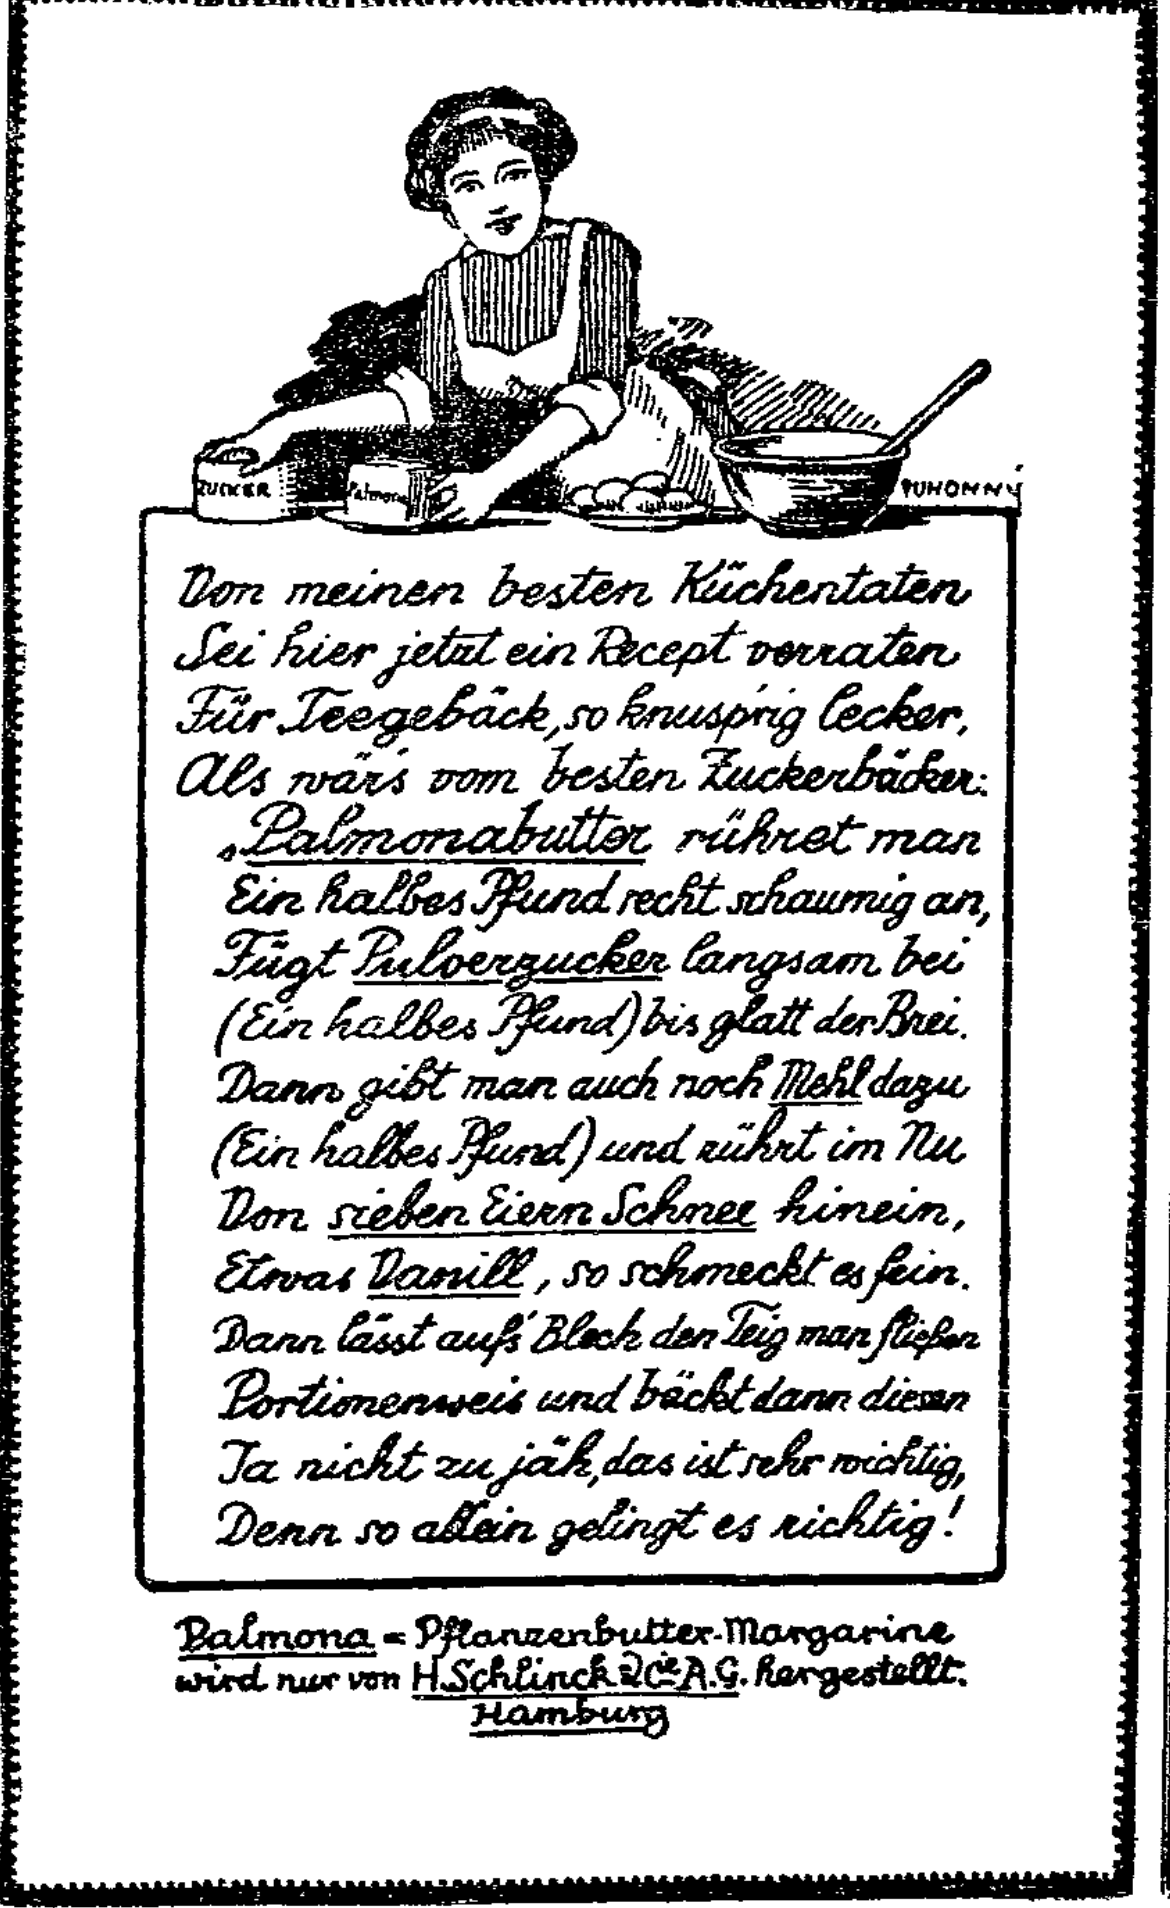 ZUCKER
Palmona
PUHONNY
Von meinen besten Küchentaten
Sei hier jetzt ein Recept verraten
Für Teegebäck, so knusp'rig lecker,
Als wär's vom besten Zuckerbäcker:
„Palmonabutter rühret man
Ein halbes Pfund recht schaumig an,
Fügt Pulverzucker langsam bei
(Ein halbes Pfund) bis glatt der Brei.
Dann gibt man auch noch Mehl dazu
(Ein halbes Pfund) und rührt im Nu
Von sieben Eiern Schnee hinein,
Etwas Vanill, so schmeckt es fein.
Dann lässt auf's Blech den Teig man fließen
Portionenweis und bäckt dann diesen
Ja nicht zu jäh, das ist sehr wichtig,
Denn so allein gelingt es richtig!
Palmona = Pflanzenbutter-Margarine
wird nur von H. Schlinck & Cie A.G. hergestellt.
Hamburg